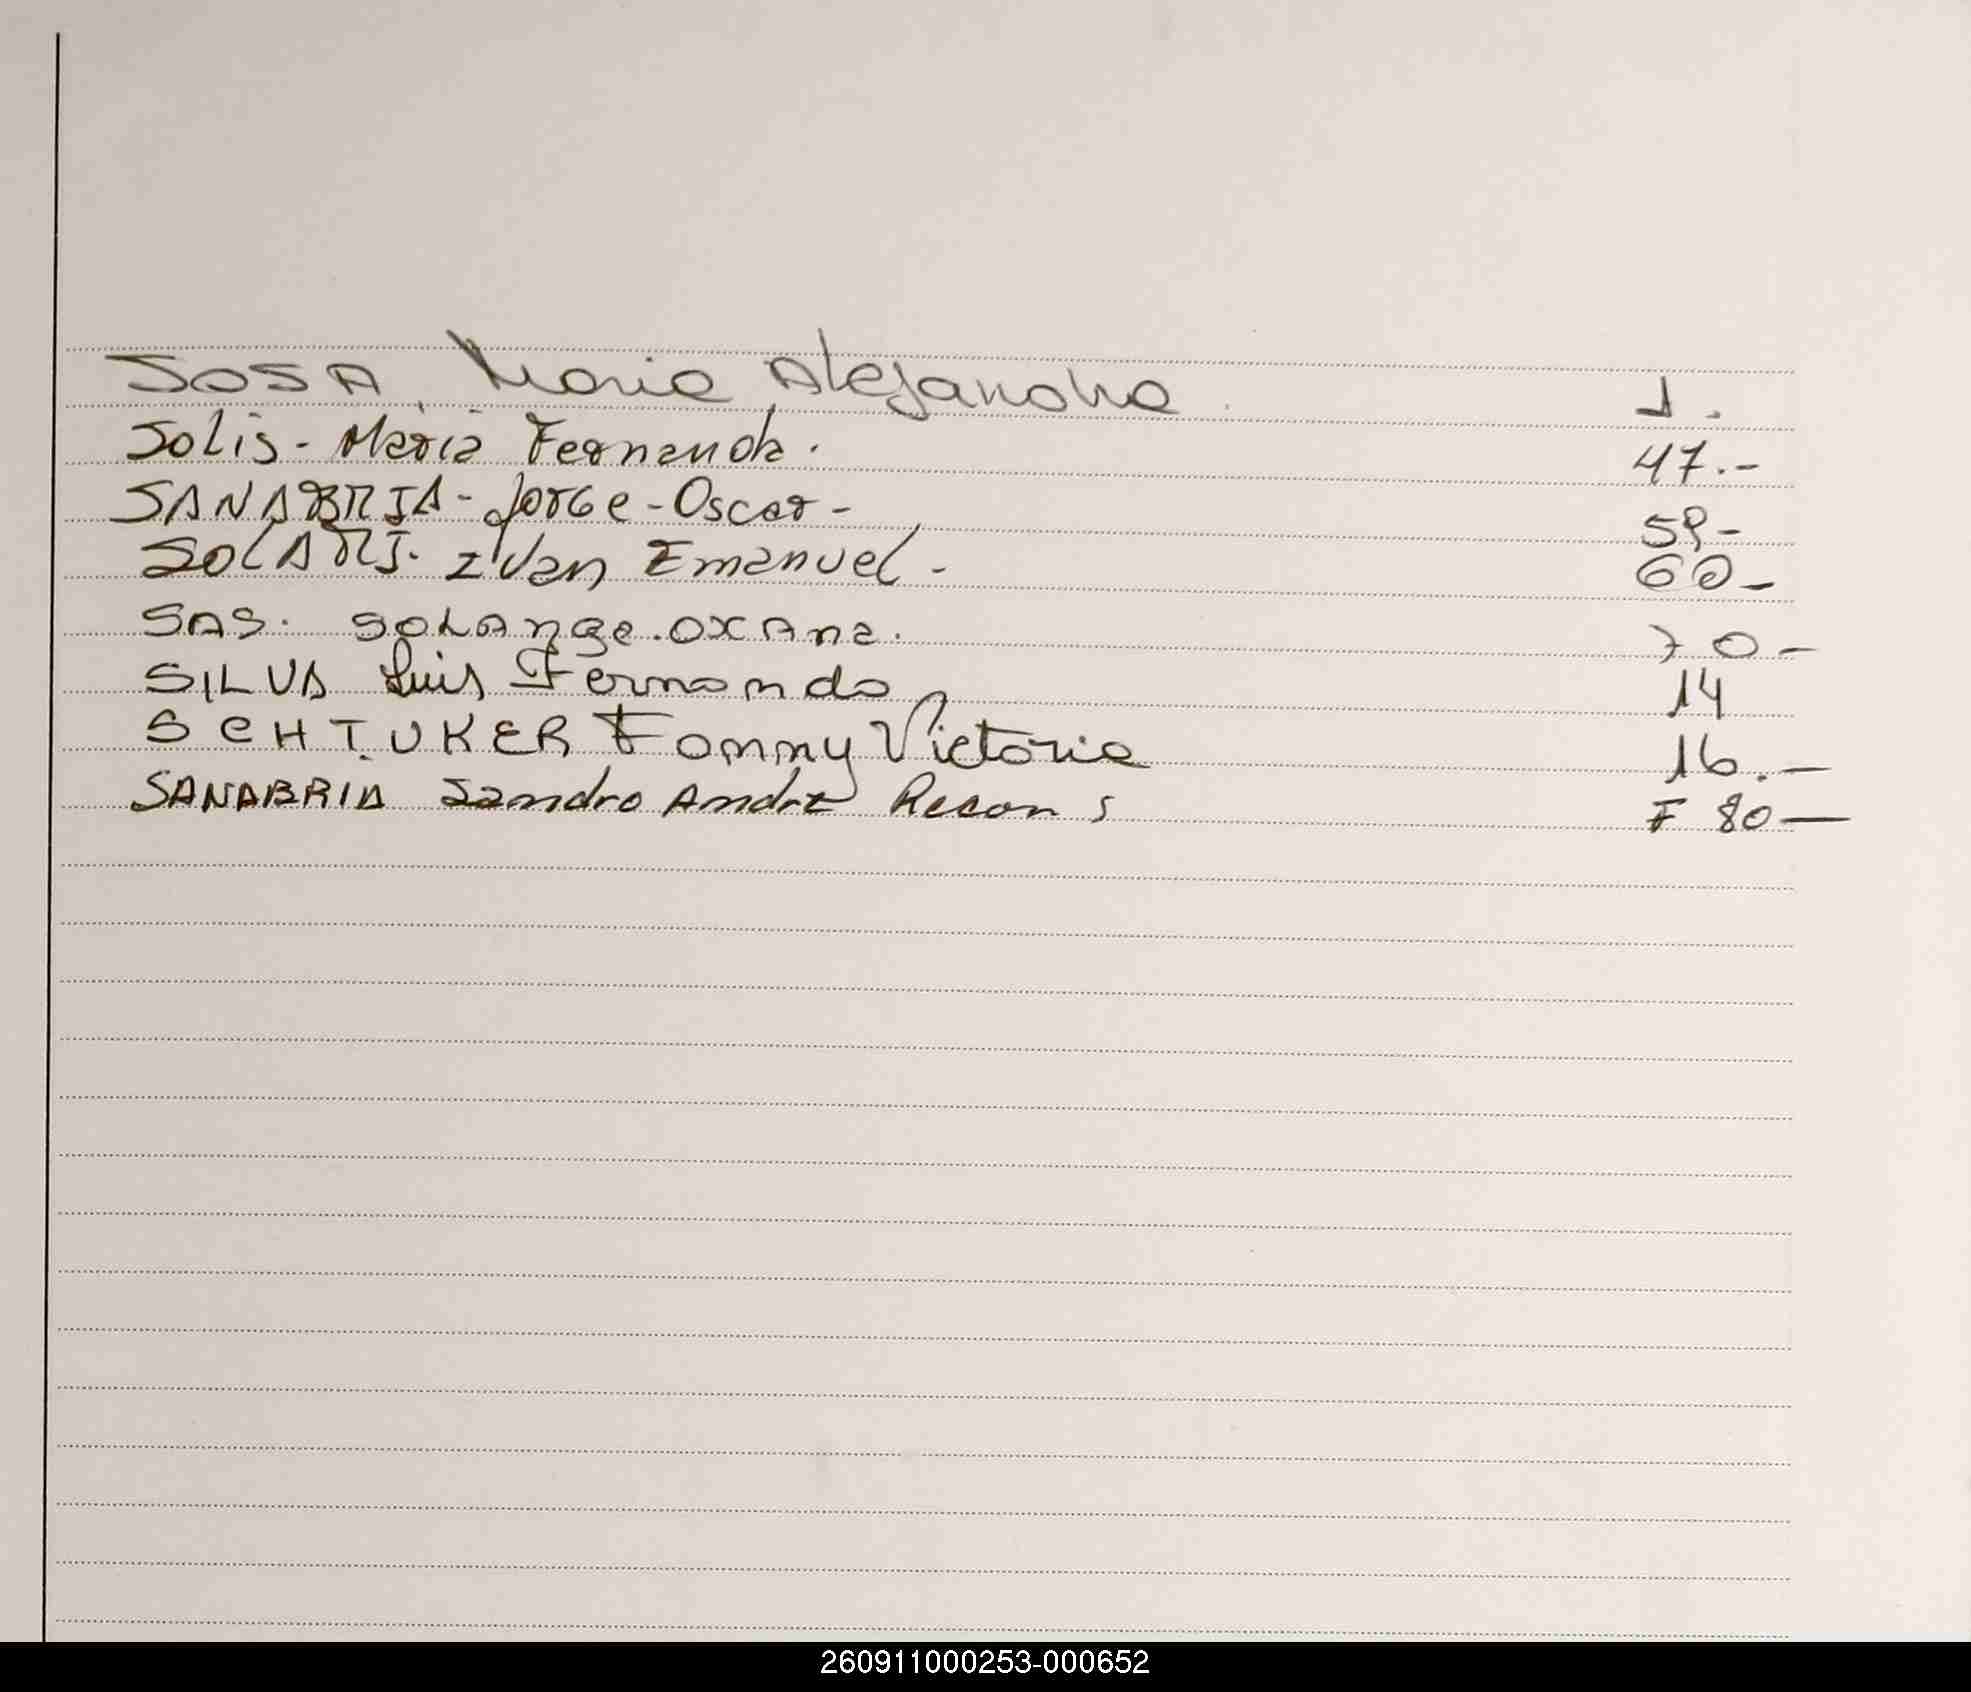 SOSA, Maria Alejandra 1.
Solis - Maria Fernanda. 47.-
SANABRIA - Jorge - Oscar - 59-
SOLARI. Ivan Emanuel - 60-
SAS. SOLAnge. OXAna. 70-
SILVA Luis Fernando 14
SCHTUKER Fanny Victoria 16.-
SANABRIA Sandro Andre Recon s F 80-
260911000253-000652